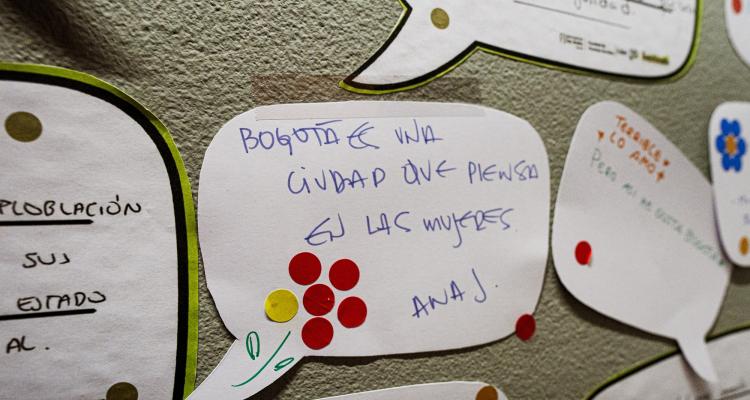 PLOBLACIÓN
SUS
ESTADO
AL.
BOGOTÁ ES UNA
CIUDAD QUE PIENSA
EN LAS MUJERES.
ANA J.
TERRIBLE
LO AMO
PERO MI ME GUSTA BOGOTÁ